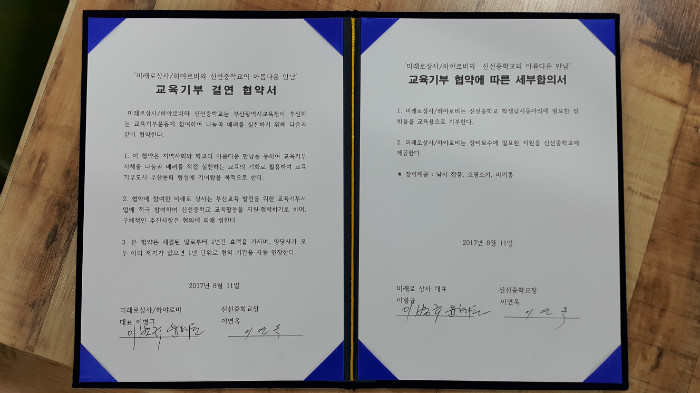 '미래로상사/하야로비와 신선중학교의 아름다운 만남'
교육기부 결연 협약서
미래로상사/하야로비와 신선중학교는 부산광역시교육청이 추진하
는 교육기부운동에 참여하여 나눔과 배려를 실천하기 위해 다음과
같이 협약한다.
1. 이 협약은 지역사회와 학교의 아름다운 만남을 통하여 교육기부
자체를 나눔과 배려를 직접 실천하는 교육의 기회로 활용하여 교육
기부도시 부산문화 형성에 기여함을 목적으로 한다.
2. 협약에 참여한 미래로 상사는 부산교육 발전을 위한 교육기부사
업에 적극 참여하여 신선중학교 교육활동을 지원·협력하기로 하며,
구체적인 추진사항은 협의에 의해 정한다.
3. 본 협약은 체결된 일로부터 1년간 효력을 가지며, 양당사가 모
두 이의 제기가 없으면 1년 단위로 협약 기간을 자동 연장한다.
2017년 8월 11일
미래로상사/하야로비
대표 이병규
신선중학교장
이연옥
이연옥
'미래로상사/하야로비와 신선중학교의 아름다운 만남'
교육기부 협약에 따른 세부합의서
1. 미래로상사/하야로비는 신선중학교 학생낚시동아리에 필요한 장
비들을 교육용으로 기부한다.
2. 미래로상사/하야로비는 장비보수에 필요한 지원을 신선중학교에
제공한다.
* 장비제공 : 낚시 장봉, 조명조끼, 미끼통
2017년 8월 11일
미래로 상사 대표
이병규
신선중학교장
이연옥
이연옥